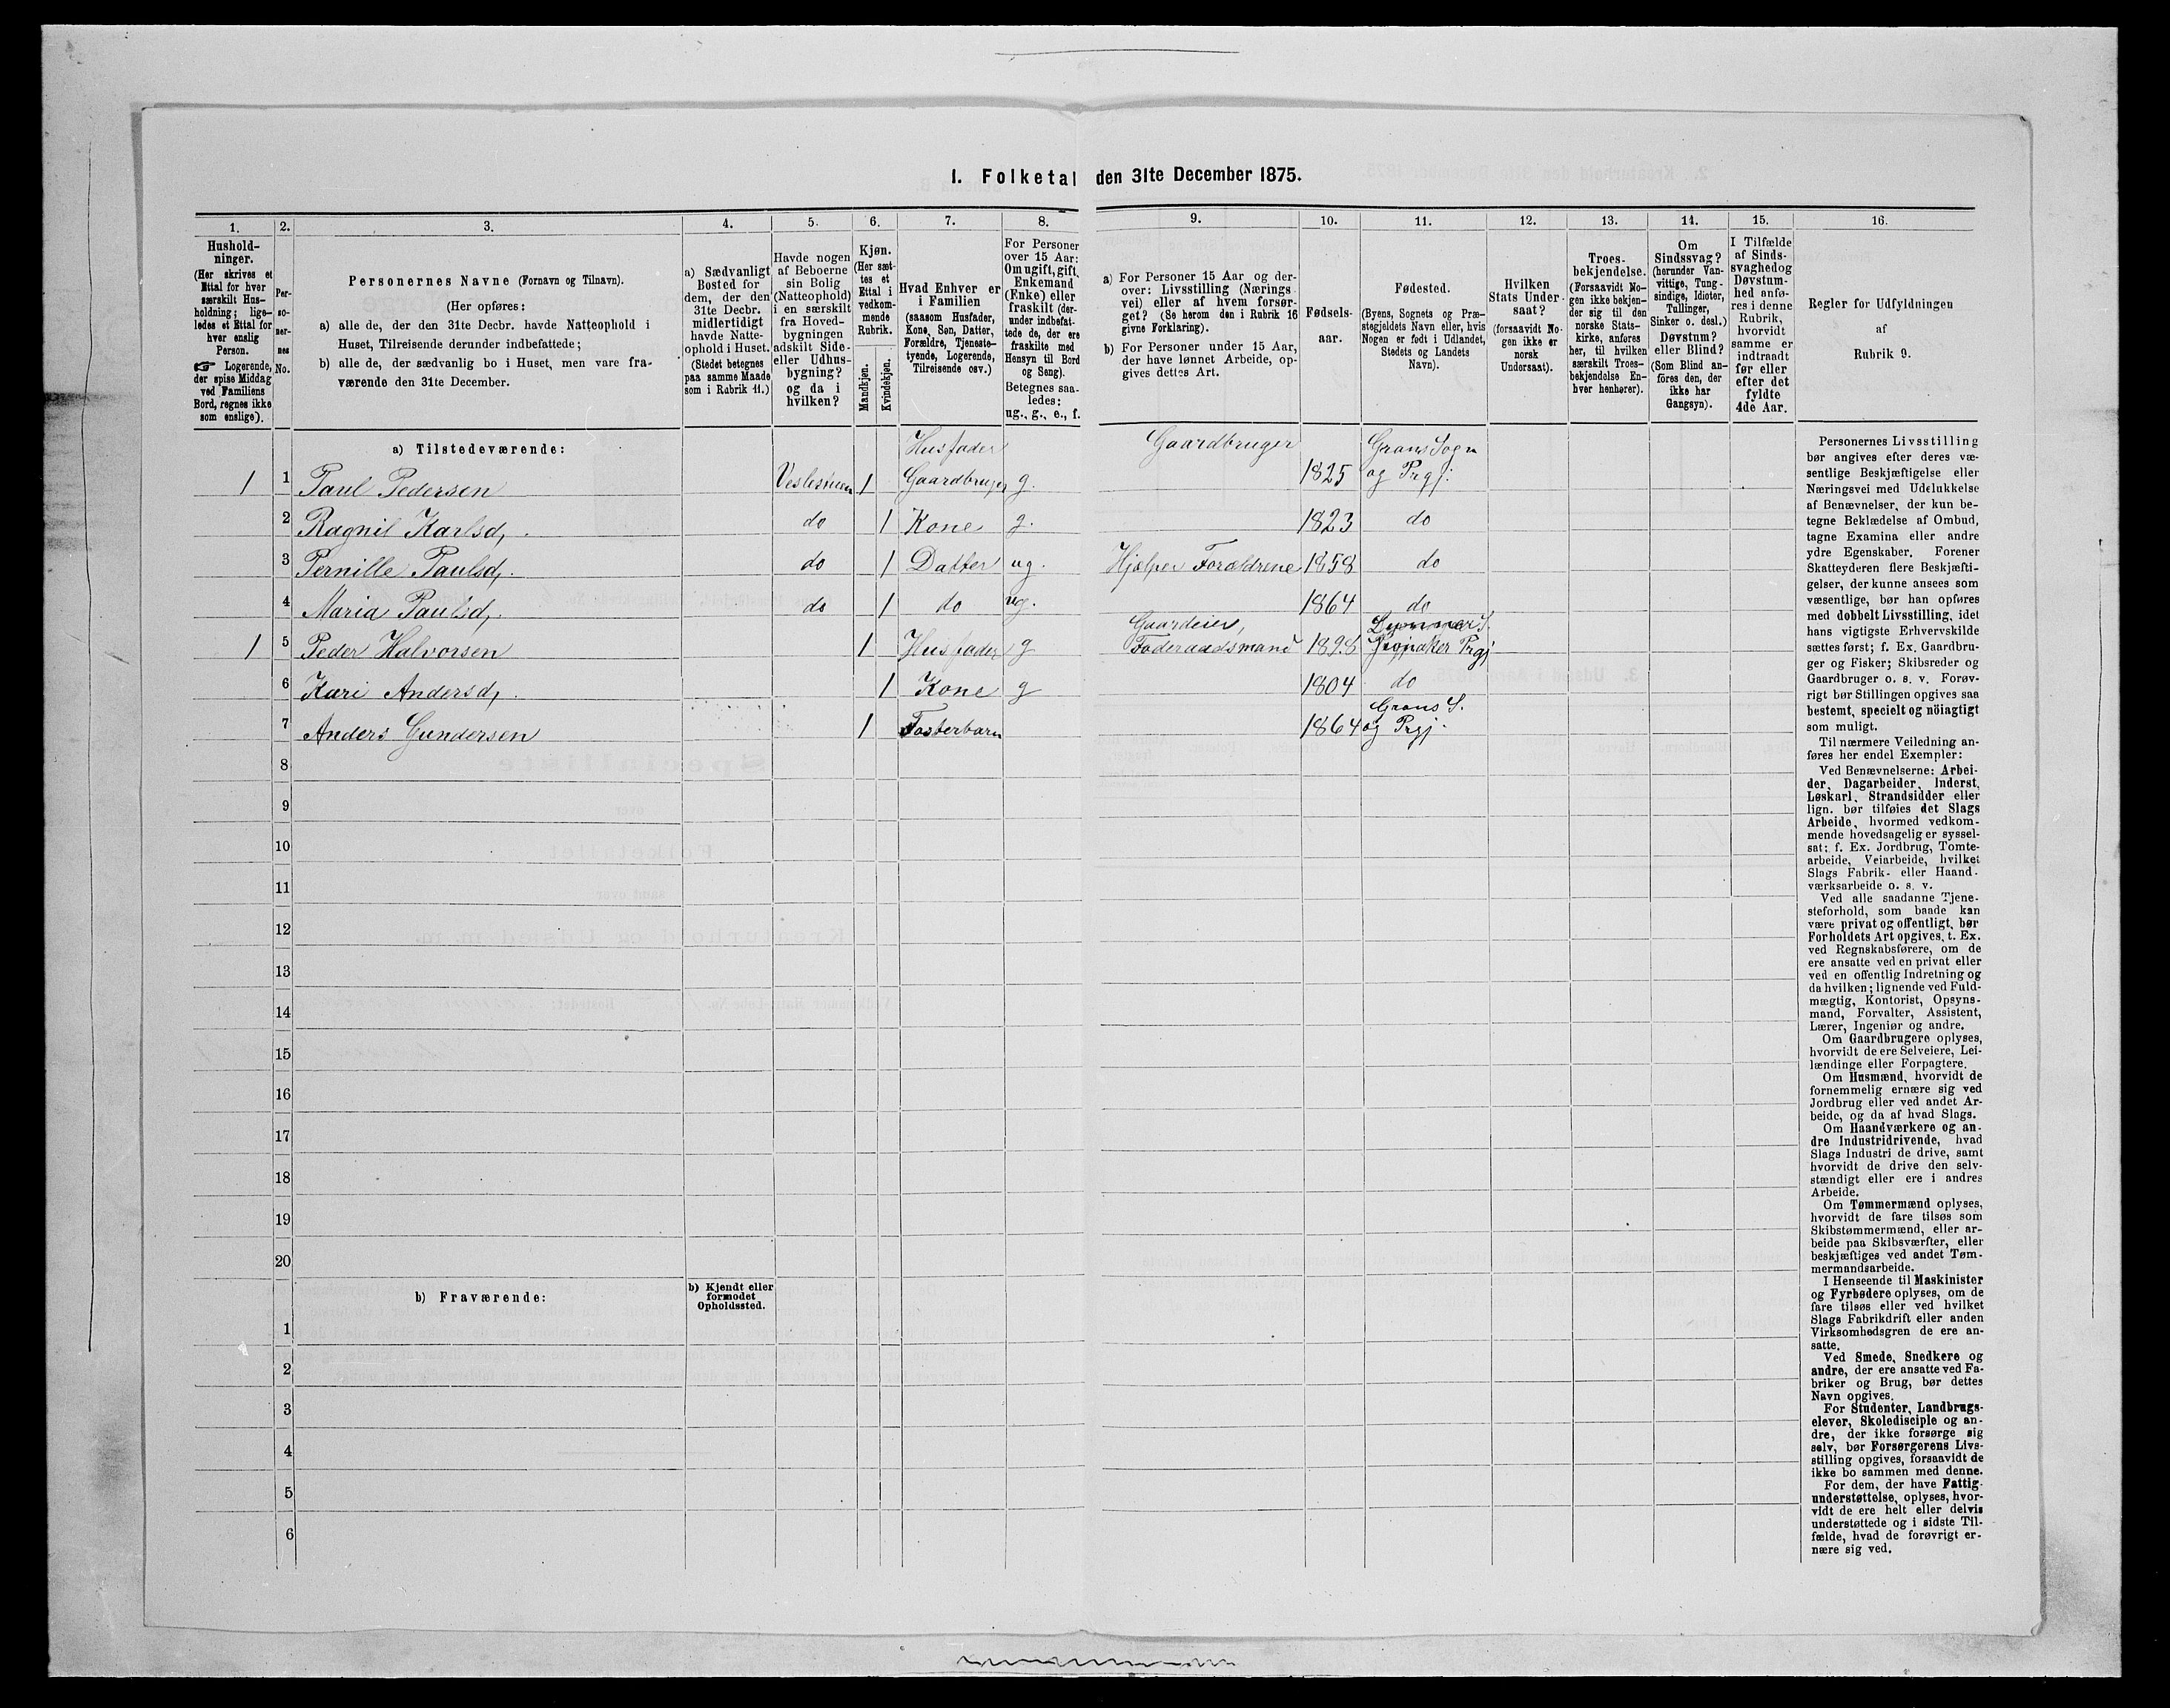 I. Folketal den 31te December 1875.
1.
2.
3.
4.
5.
6.
7.
8.
9.
10.
11.
12.
13.
14.
15.
16.
Hushold-
ninger.
(Her skrives et
Ettal for hver
særskilt Hus-
holdning; lige-
ledes et Ettal for
hver enslig
Person.
☞ Logerende,
der spise Middag
ved Familiens
Bord, regnes ikke
som enslige).
Per-
so-
ner-
nes
No.
Personernes Navne (Fornavn og Tilnavn).
(Her opføres:
a) alle de, der den 31te Decbr. havde Natteophold i
Huset, Tilreisende derunder indbefattede;
b) alle de, der sædvanlig bo i Huset, men vare fra-
værende den 31te December.
a) Sædvanligt
Bosted for
dem, der den
31te Decbr.
midlertidigt
havde Natte-
ophold i Huset.
(Stedet betegnes
paa samme Maade
som i Rubrik 11.)
Havde nogen
af Beboerne
sin Bolig
(Natteophold)
i en særskilt
fra Hoved-
bygningen
adskilt Side-
eller Udhus-
bygning?
og da i
hvilken?
Kjøn.
(Her sæt-
tes et
Ettal i
vedkom-
mende
Rubrik.
Mandkjøn.
Kvindekjøn.
Hvad Enhver er
i Familien
(saasom Husfader,
Kone, Søn, Datter,
Forældre, Tjeneste-
tyende, Logerende,
Tilreisende osv.)
For Personer
over 15 Aar:
Om ugift, gift,
Enkemand
(Enke) eller
fraskilt (der-
under indbefat-
tede de, der ere
fraskilte med
Hensyn til Bord
og Seng).
Betegnes saa-
ledes:
ug., g., e., f.
a) For Personer 15 Aar og der-
over: Livsstilling (Nærings-
vei) eller af hvem forsør-
get? (Se herom den i Rubrik 16
givne Forklaring).
b) For Personer under 15 Aar,
der have lønnet Arbeide, op-
gives dettes Art.
Fødsels-
aar.
Fødested.
(Byens, Sognets og Præ-
stegjeldets Navn eller, hvis
Nogen er født i Udlandet,
Stedets og Landets
Navn).
Hvilken
Stats Under-
saat?
(forsaavidt No-
gen ikke er
norsk
Undersaat).
Troes-
bekjendelse.
(Forsaavidt No-
gen ikke bekjen-
der sig til den
norske Stats-
kirke, anføres
her, til hvilken
særskilt Troes-
bekjendelse En-
hver henhører).
Om
Sindssvag?
(herunder Van-
vittige, Tung-
sindige, Idioter,
Tullinger,
Sinker o. desl.)
Døvstum?
eller Blind?
(Som Blind an-
føres den, der
ikke har
Gangsyn).
I Tilfælde
af Sinds-
svaghed og
Døvstum-
hed anfø-
res i denne
Rubrik,
hvorvidt
samme er
indtraadt
før eller
efter det
fyldte
4de Aar.
Regler for Udfyldningen
af
Rubrik 9.
a) Tilstedeværende:
Husfader
Gaardbruger
Grans Sogn
1 1 Paul Pedersen Veslestuen 1 Gaardbruger g. 1825 og Prgj.
2 Ragnil Karlsd, do 1 Kone g. 1823 do
3 Pernille Paulsd, do 1 Datter ug. Hjælper Forældrene 1858 do
4 Maria Paulsd, do 1 do ug. 1864 do
Gaardeier,
1 5 Peder Halvorsen 1 Husfader g Føderaadsmand Prgj
6 Kari Andersd, 1 Kone g 1804 do
Grans S.
7 Anders Gundersen 1 Fosterbarn 1864 og Prgj.
8
9
10
11
12
13
14
15
16
17
18
19
20
b) Fraværende:
b) Kjendt eller
formodet
Opholdssted.
1
2
3
4
5
6
Personernes Livsstilling
bør angives efter deres væ-
sentlige Beskjæftigelse eller
Næringsvei med Udelukkelse
af Benævnelser, der kun be-
tegne Beklædelse af Ombud,
tagne Examina eller andre
ydre Egenskaber. Forener
Skatteyderen flere Beskjæfti-
gelser, der kunne ansees som
væsentlige, bør han opføres
med dobbelt Livsstilling, idet
hans vigtigste Erhvervskilde
sættes først; f. Ex. Gaardbru-
ger og Fisker; Skibsreder og
Gaardbruger o. s. v. Forøv-
rigt bør Stillingen opgives saa
bestemt, specielt og nöiagtigt
som muligt.
Til nærmere Veiledning an-
føres her endel Exempler:
Ved Benævnelserne: Arbei-
der, Dagarbeider, Inderst,
Løskarl, Strandsidder eller
lign. bør tilføies det Slags
Arbeide, hvormed vedkom-
mende hovedsagelig er syssel-
sat; f. Ex. Jordbrug, Tomte-
arbeide, Veiarbeide, hvilket
Slags Fabrik- eller Haand-
værksarbeide o. s. v.
Ved alle saadanne Tjene-
steforhold, som baade kan
være privat og offentligt, bør
Forholdets Art opgives, t. Ex.
ved Regnskabsførere, om de
ere ansatte ved en privat eller
ved en offentlig Indretning og
da hvilken; lignende ved Fuld-
mægtig, Kontorist, Opsyns-
mand, Forvalter, Assistent,
Lærer, Ingeniør og andre.
Om Gaardbrugere oplyses,
hvorvidt de ere Selveiere, Lei-
lændinge eller Forpagtere.
Om Husmænd, hvorvidt de
fornemmelig ernære sig ved
Jordbrug eller ved andet Ar-
beide, og da af hvad Slags.
Om Haandværkere og an-
dre Industridrivende, hvad
Slags Industri de drive, samt
hvorvidt de drive den selv-
stændigt eller ere i andres
Arbeide.
Om Tømmermænd oplyses,
hvorvidt de fare tilsøs som
Skibstømmermænd, eller ar-
beide paa Skibsværfter, eller
beskjæftiges ved andet Tøm-
mermandsarbeide.
I Henseende til Maskinister
og Fyrbødere oplyses, om de
fare tilsøs eller ved hvilket
Slags Fabrikdrift eller anden
Virksomhedsgren de ere an-
satte.
Ved Smede, Snedkere og
andre, der ere ansatte ved Fa-
briker og Brug, bør dettes
Navn opgives.
For Studenter, Landbrugs-
elever, Skoledisciple og an-
dre, der ikke forsørge sig
selv, bør Forsørgerens Livs-
stilling opgives, forsaavidt de
ikke bo sammen med denne.
For dem, der have Fattig-
understøttelse, oplyses, hvor-
vidt de ere helt eller delvis
understøttede og i sidste Til-
fælde, hvad de forøvrigt er-
nære sig ved.